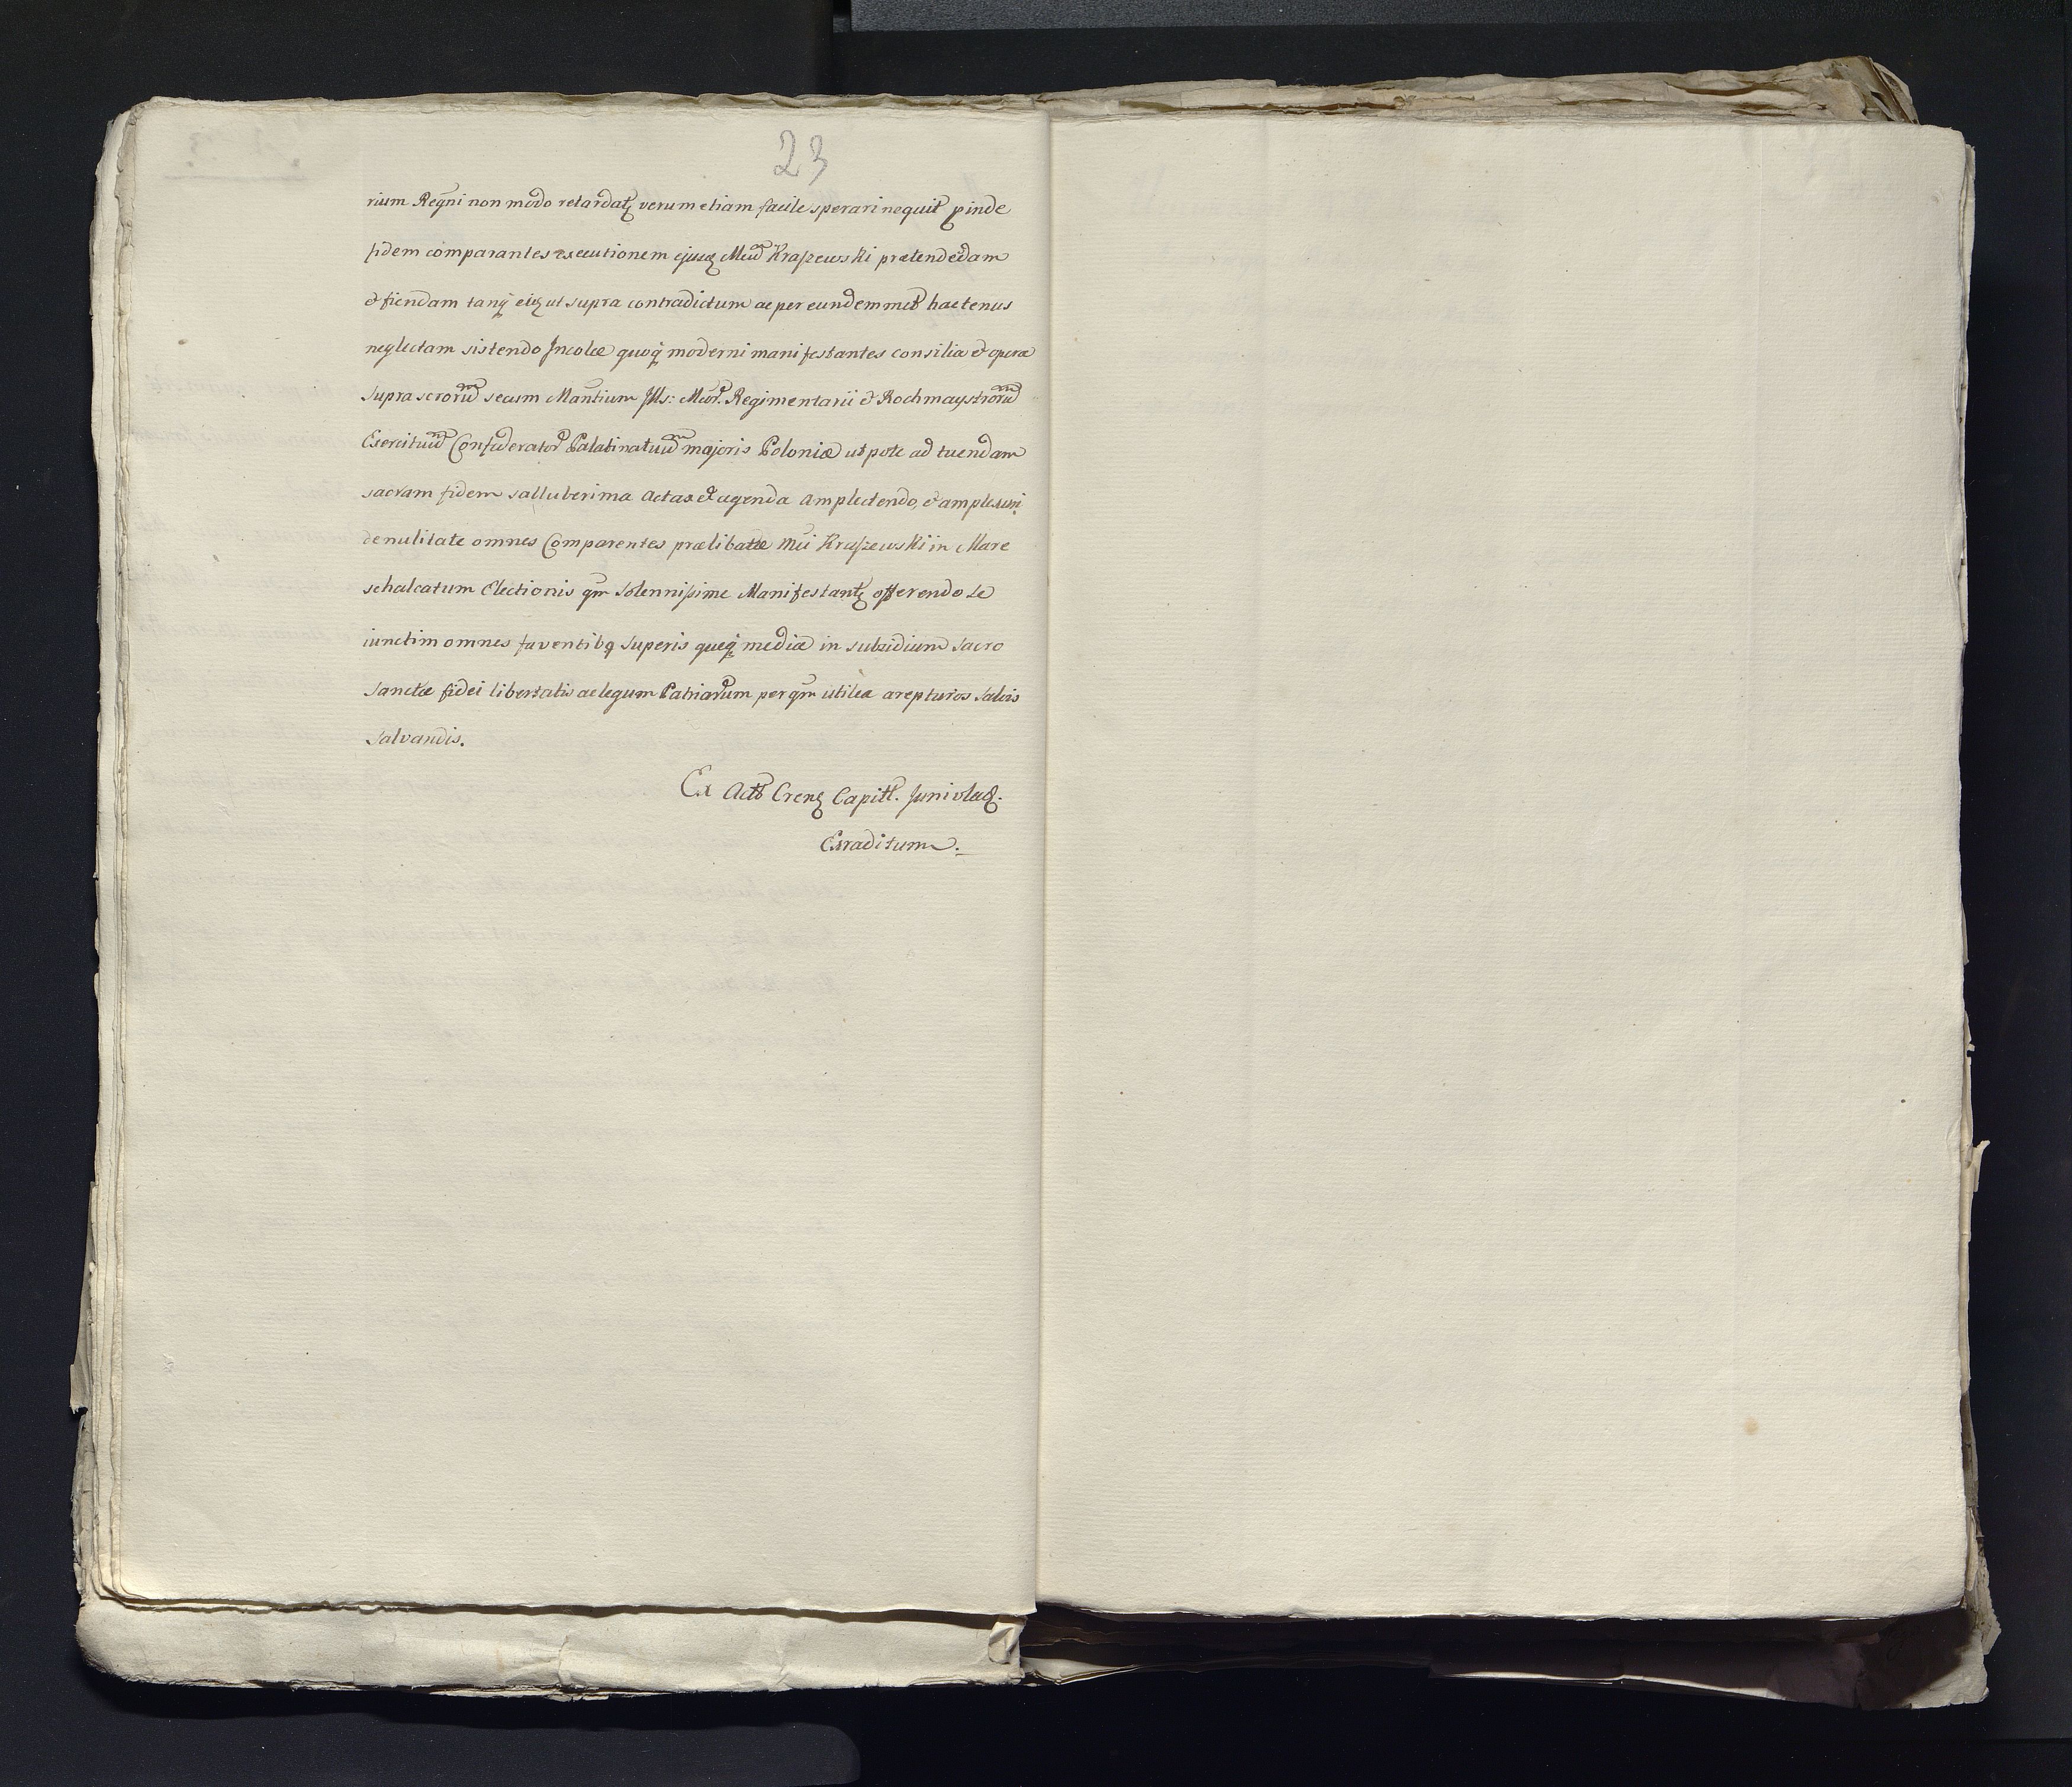 23
rium Regni non modo retardatȝ verum etiam facile sperari nequit ꝑinde
fidem comparantes executionem ejusq Mcū Kraszewski prætendēdam
& fiendam tanq̃ eiq ut supra contradictum ac per eundemmet hactenus
neglectam sistendo Incolæ quoq̃ moderni manifestantes consilia & opera
suprascrorū secum Mantium Ills: Mcor. Regimentarii & Rochmaystrorū
Exercituū Confæderator Palatinatuū majoris Poloniæ utpote ad tuendam
sacram fidem salluberima Acta & agenda Amplectendo, &
de nulitate omnes Comparentes prælibatæ Mci Kraszewski in Mare
schalcatum Electionis qm̃ solennissime Manifestantȝ offerendo se
iunctim omnes faventibq superis queq̃ media in subsidium sacro
sanctæ fidei libertatis ac legum Patriarum perqm̃ utilia arepturos salvis
salvandis.
Ex Actis Crenȝ Capitl. Junivladȝ.
Extraditum.